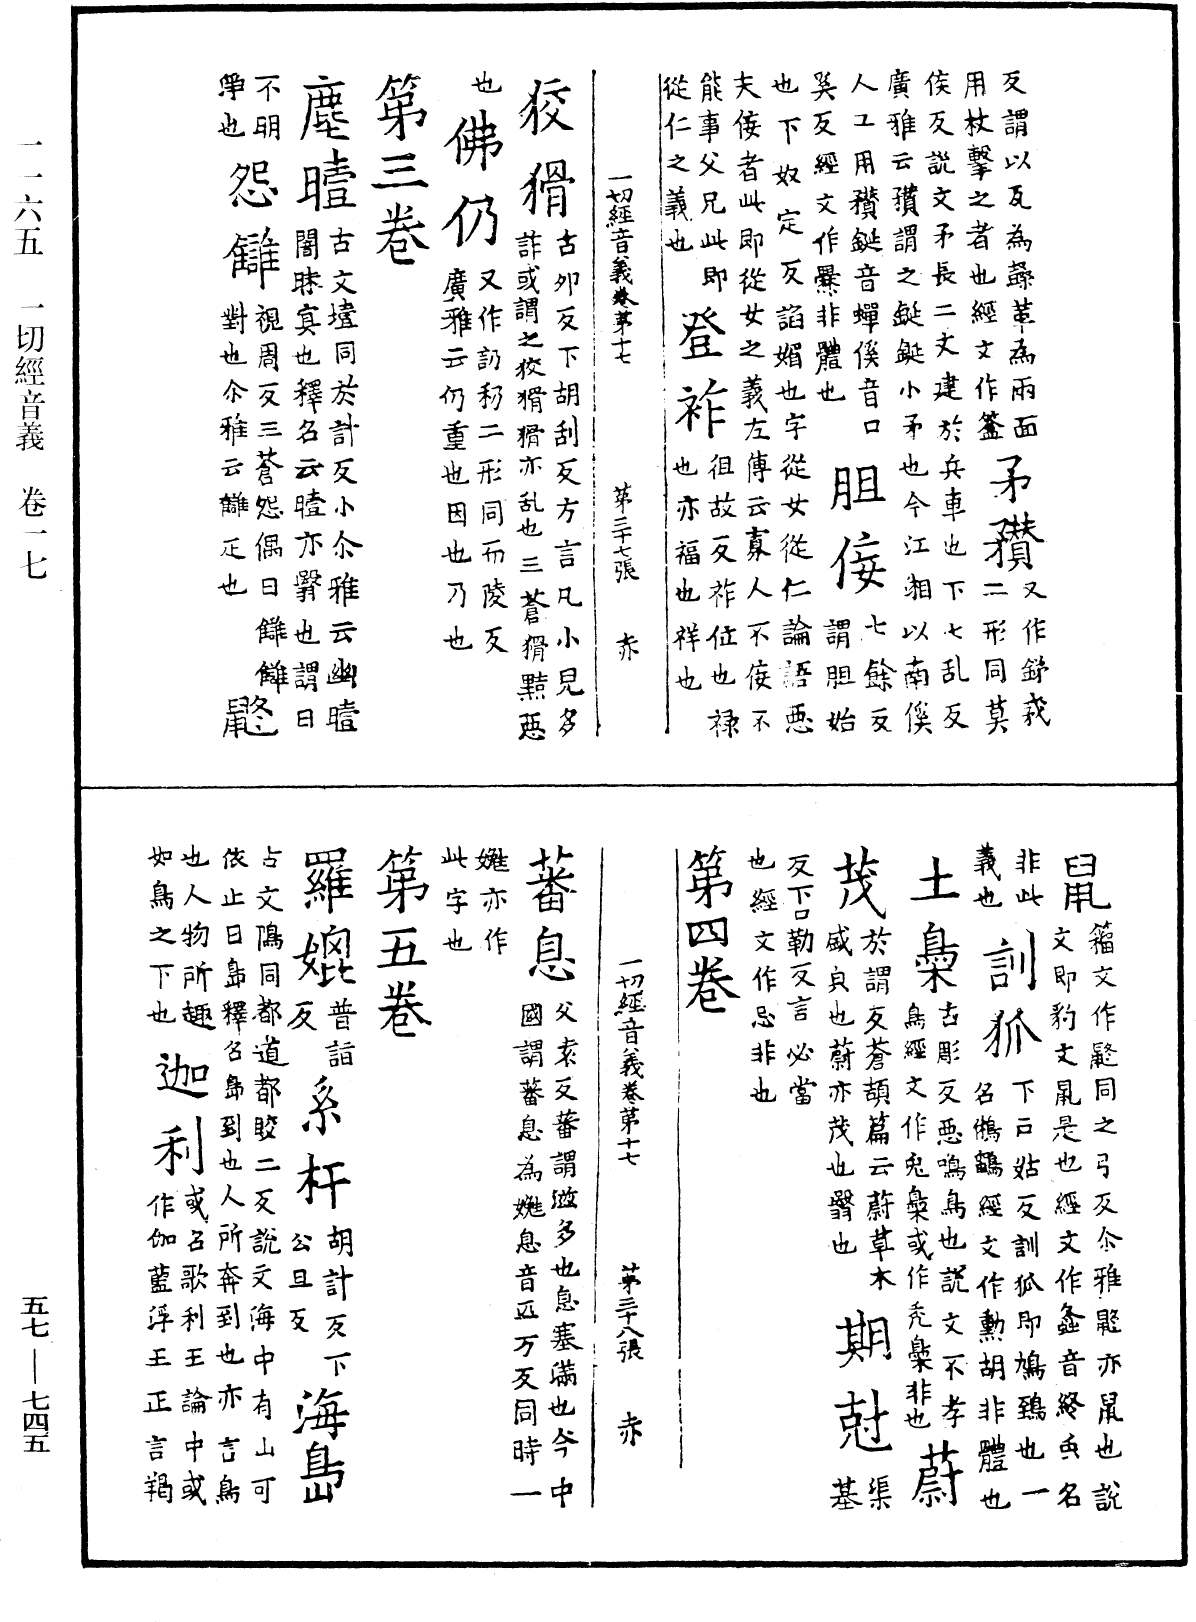 反謂以瓦為蔾茥為兩面
用杖擊之者也經文作簦
矛穳
又作鋑䂎
二形同莫
侯反說文矛長二丈建於兵車也下七乱反
廣雅云穳謂之鋋鋋小矛也今江湘以南傒
人工用穳鋋音蟬傒音口
奚反經文作爨非體也
胆佞
七餘反
謂胆始
也下奴定反諂媚也字從女從仁論語惡
夫佞者此即從女之義左傳云寡人不佞不
能事父兄此即
從仁之義也
登祚
徂故反祚位也祿
也亦福也祥也
一切經音義卷第十七 第三十七張 赤
狡猾
古夘反下胡刮反方言凡小兒多
詐或謂之狡猾猾亦乱也三蒼猾黠惡
也
佛仍
又作訒礽二形同而陵反
廣雅云仍重也因也乃也
第三卷
塵曀
古文壇同於計反小尒雅云幽曀
闇昧冥也釋名云曀亦翳也謂日
不明
也
怨讎
視周反三蒼怨偶曰讎讎
對也尒雅云讎疋也
鼨
鼠
籀文作鼨同之弓反尒雅鼨亦鼠也說
文即豹文鼠是也經文作螽音終兵名
非此
義也
訓狐
下戸姑反訓狐即鳩鵄也一
名鵂鶹經文作勳胡非體也
土梟
古彫反惡鳴鳥也說文不孝
鳥經文作兎梟或作禿梟非也
蔚茂
於謂反蒼頡篇云蔚草木
盛皃也蔚亦茂也翳也
期尅
渠基
反下口勒反言必當
也經文作忌非也
第四卷
一切經音義卷第十七 第三十八張 赤
蕃息
父袁反蕃謂滋多也息塞滿也今中
國謂蕃息為嬎息音匹万反同時一
嬎亦作
此字也
第五卷
羅媲
普詣
反
系杆
胡計反下
公旦反
海島
古文隝同都道都晈二反說文海中有山可
依止曰島釋名島到也人所奔到也亦言鳥
也人物所趣
如鳥之下也
迦利
或名歌利王論中或
作伽藍浮王正言羯
一一六五 一切經音義 卷一七
五七—七四五